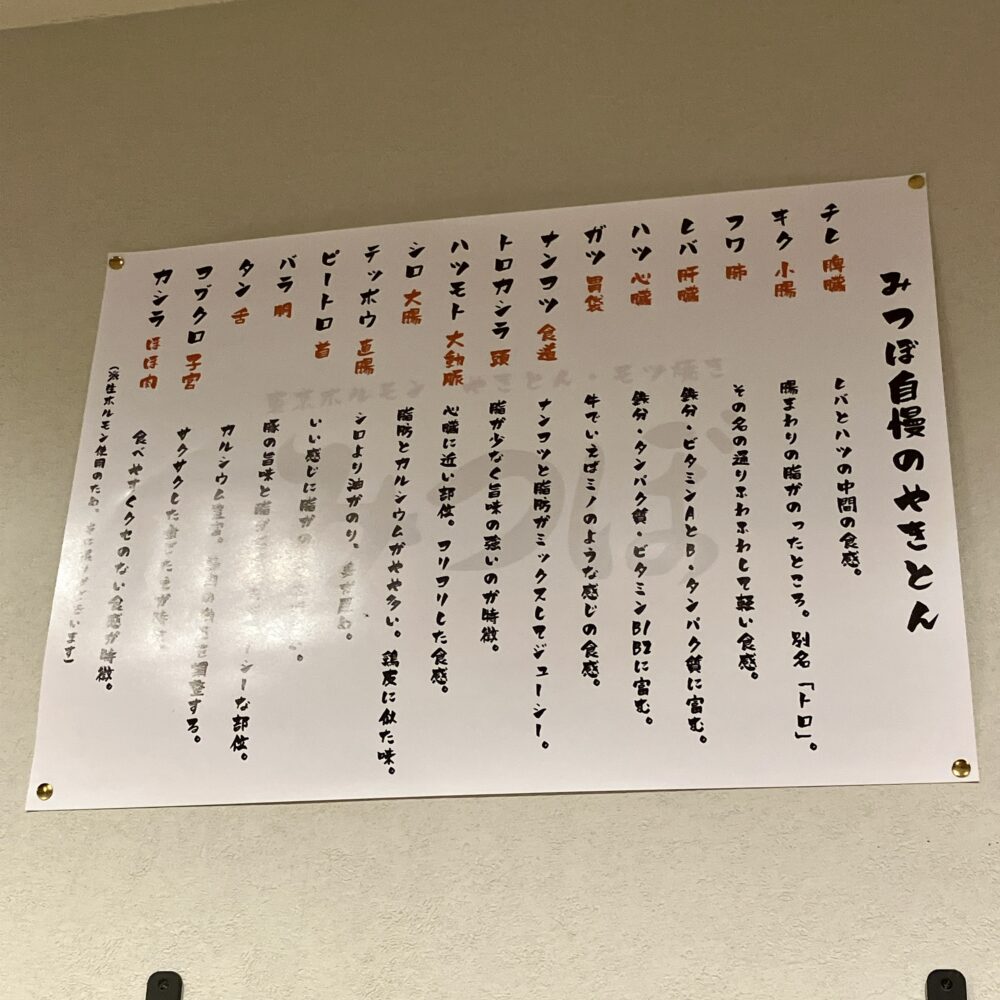 みつぼ自慢のやきとん
チレ 脾臓 レバとハツの中間の食感。
キク 小腸 腸まわりの脂がのったところ。別名「トロ」。
フワ 肺 その名の通りふわふわして軽い食感。
レバ 肝臓 鉄分・ビタミンAとB・タンパク質に富む。
ハツ 心臓 鉄分・タンパク質・ビタミンB1B2に富む。
ガツ 胃袋 牛でいえばミノのような感じの食感。
ナンコツ 食道 ナンコツと脂肪がミックスしてジューシー。
トロカシラ 頭 脂が少なく旨味の強いのが特徴。
ハツモト 大動脈 心臓に近い部位。コリコリした食感。
シロ 大腸 脂肪とカルシウムがやや多い。鶏皮に似た味。
テッポウ 直腸 シロより油がのり、
ピートロ 首 いい感じに脂が
バラ 胴 豚の旨味と脂が シーな部位。
タン 舌 カルシウム豊富。 調整する。
コブクロ 子宮 サクサクした
カシラ ほほ肉 食べやすくクセのない食感が特徴。
ホルモン使用のため、 ざいます)
東京ホルモン やきとん・モツ焼き
みつぼ